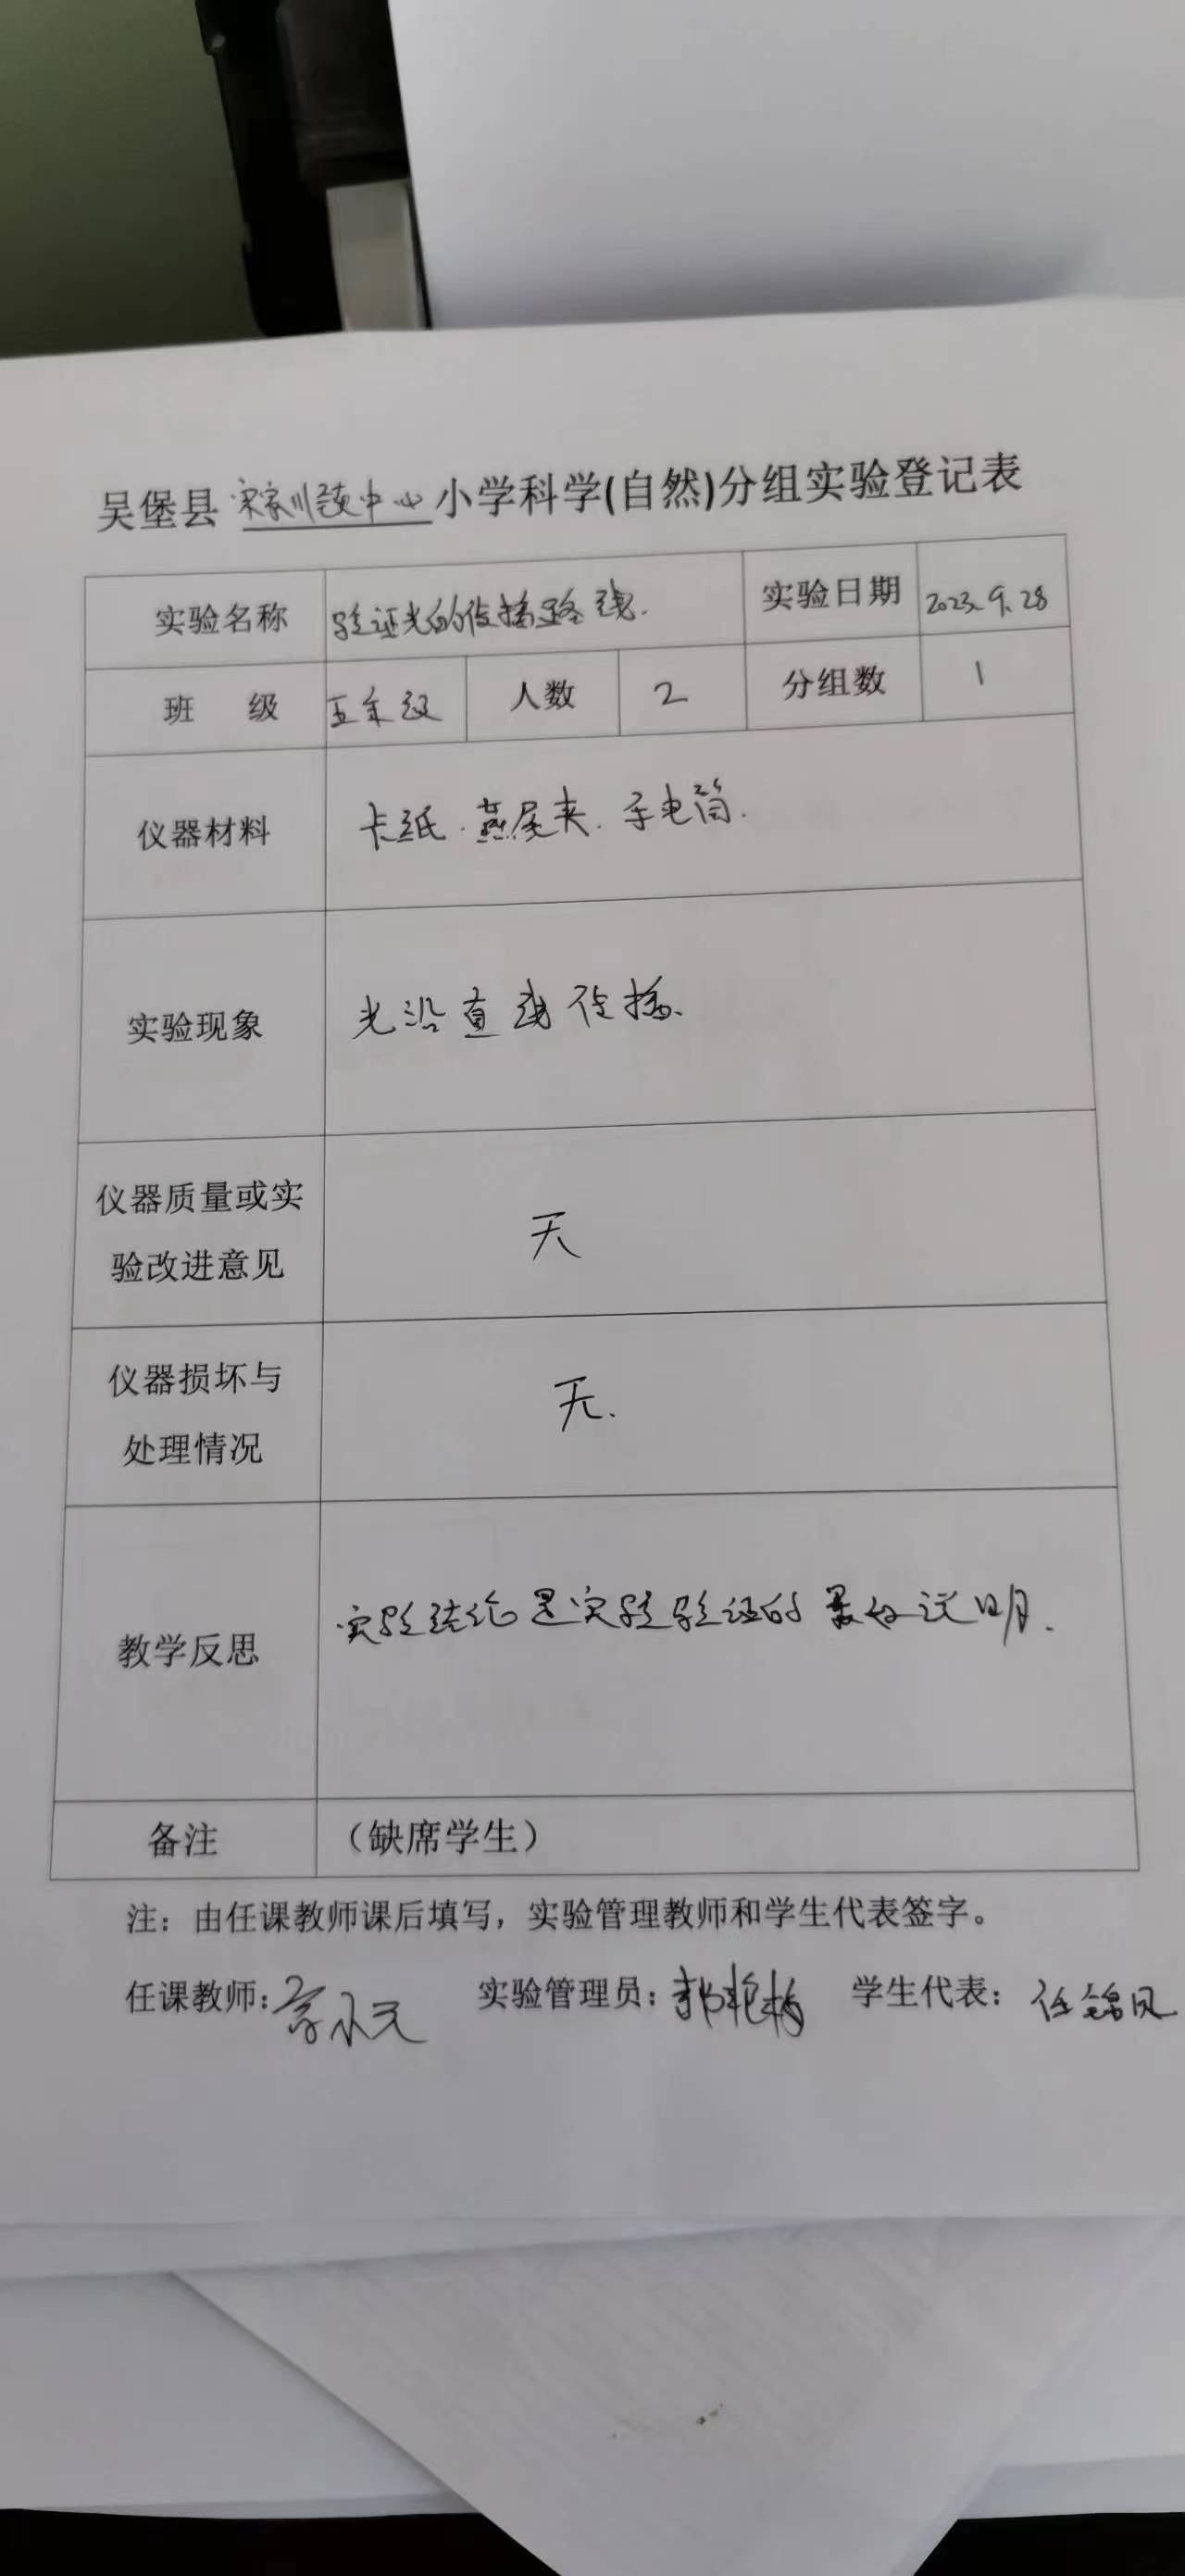 吴堡县 宋家川镇中心 小学科学(自然)分组实验登记表
实验名称 验证光的传播路线. 实验日期 2023.9.28
班 级 五年级 人数 2 分组数 1
仪器材料 卡纸.燕尾夹.手电筒.
实验现象 光沿直线传播.
仪器质量或实
验改进意见
无
仪器损坏与
处理情况
无.
教学反思 实验结论是实验验证的最好说明.
备注 (缺席学生)
注：由任课教师课后填写，实验管理教师和学生代表签字。
任课教师: 实验管理员: 郭艳梅 学生代表: 任锦凤